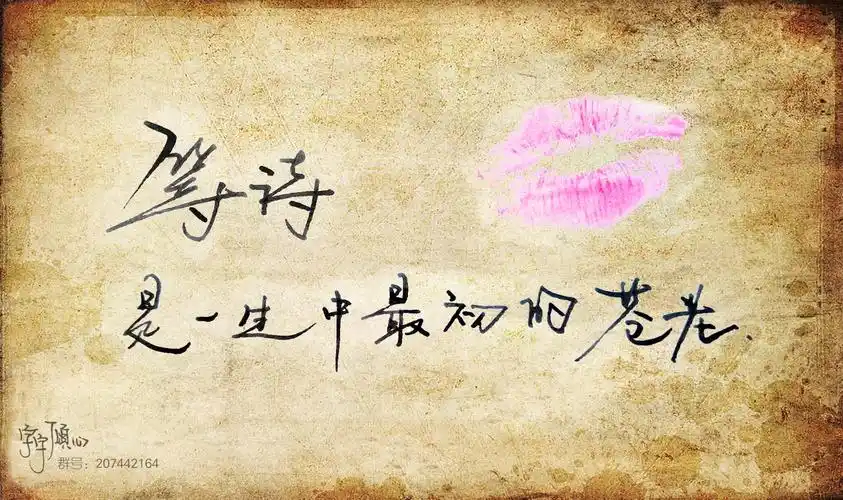 等诗
是一生中最初的苍老.
字字倾心
群号：207442164